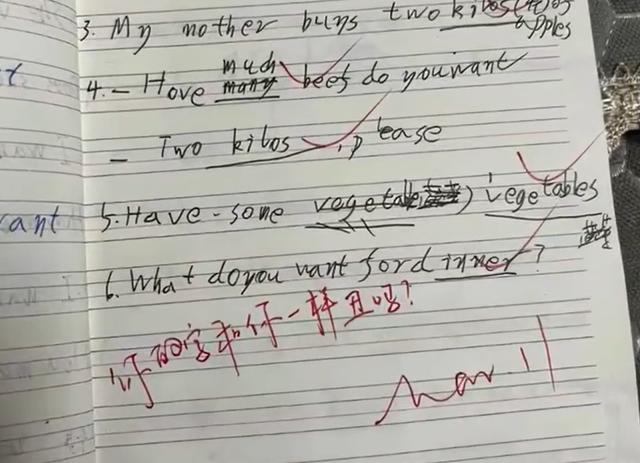 3. My mother buys two kilos of
apples
much
4. – Hove many beef do you want
– Two kilos, please
5. Have some vegetable vegetables
6. What do you want for dinner?
你的字和你一样丑吗?
Mar. 11
ant